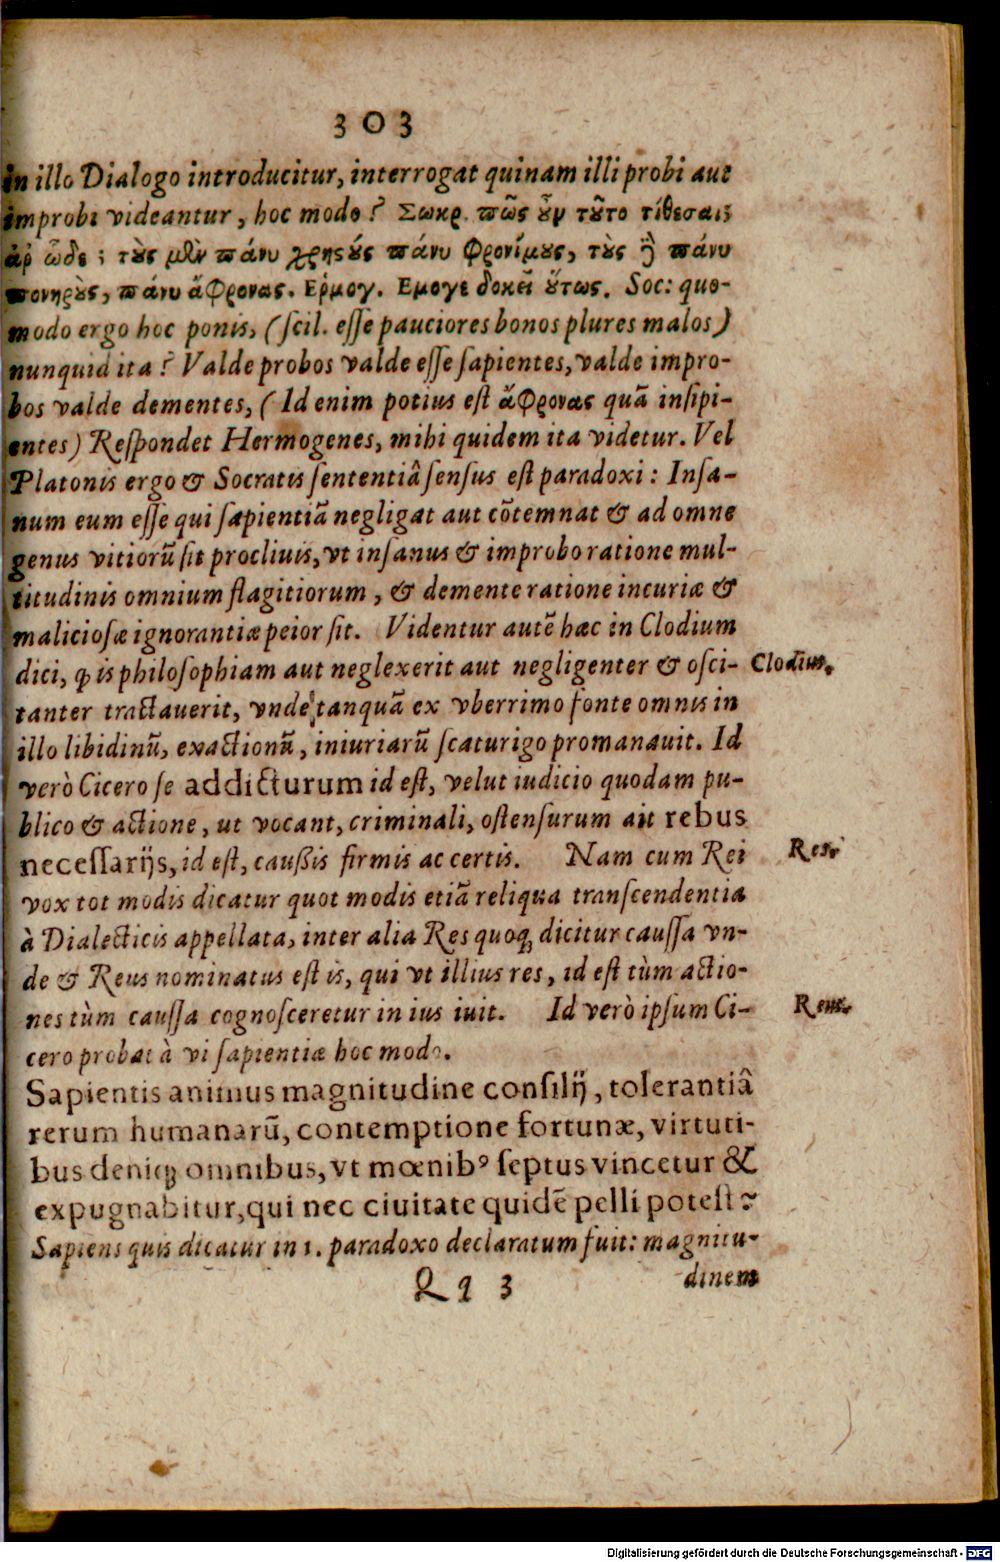 303
in illo Dialogo introducitur, interrogat quinam illi probi aut
improbi videantur, hoc modo? Σωκρ. πῶς ȣ̓͂ν τȣ͂το τίθεσαι;
ἆρ ὧδε; τȣ̀ς μὲν πάνυ χρηϛȣ́ς πάνυ φρονίμȣς, τȣ̀ς δὲ πάνυ
πονηρȣ̀ς, πάνυ ἄφρονας. Ερμογ. Εμοιγε δοκεῖ ȣ̔́τως. Soc: quo-
modo ergo hoc ponis, (scil. esse pauciores bonos plures malos)
nunquid ita? Valde probos valde esse sapientes, valde impro-
bos valde dementes, (Id enim potius est ἄφρονας quã insipi-
entes) Respondet Hermogenes, mihi quidem ita videtur. Vel
Platonis ergo & Socratis sententiâ sensus est paradoxi: Insa-
num eum esse qui sapientiã negligat aut cõtemnat & ad omne
genus vitiorũ sit procliuis, vt insanus & improbo ratione mul-
titudinis omnium flagitiorum, & demente ratione incuriæ &
maliciosæ ignorantiæ peior sit. Videntur autẽ hæc in Clodium
dici, ꝙ is philosophiam aut neglexerit aut negligenter & osci-
Clodius.
tanter tractauerit, vnde tanquã ex vberrimo fonte omnis in
illo libidinũ, exactionũ, iniuriarũ scaturigo promanauit. Id
verò Cicero se addicturum id est, velut iudicio quodam pu-
blico & actione, ut vocant, criminali, ostensurum ait rebus
necessarijs, id est, caußis firmis ac certis. Nam cum Rei
Res.
vox tot modis dicatur quot modis etiã reliqua transcendentia
à Dialecticis appellata, inter alia Res quoq; dicitur caussa vn-
de & Reus nominatus est is, qui vt illius res, id est tùm actio-
nes tùm caussa cognosceretur in ius iuit. Id verò ipsum Ci-
Reus.
cero probat à vi sapientiæ hoc modo.
Sapientis animus magnitudine consilij, tolerantiâ
rerum humanarũ, contemptione fortunæ, virtuti-
bus deniq; omnibus, vt mœnibꝰ septus vincetur &
expugnabitur, qui nec ciuitate quidẽ pelli potest?
Sapiens quis dicatur in 1. paradoxo declaratum fuit: magnitu-
Qq 3
dinem
Digitalisierung gefördert durch die Deutsche Forschungsgemeinschaft - DFG